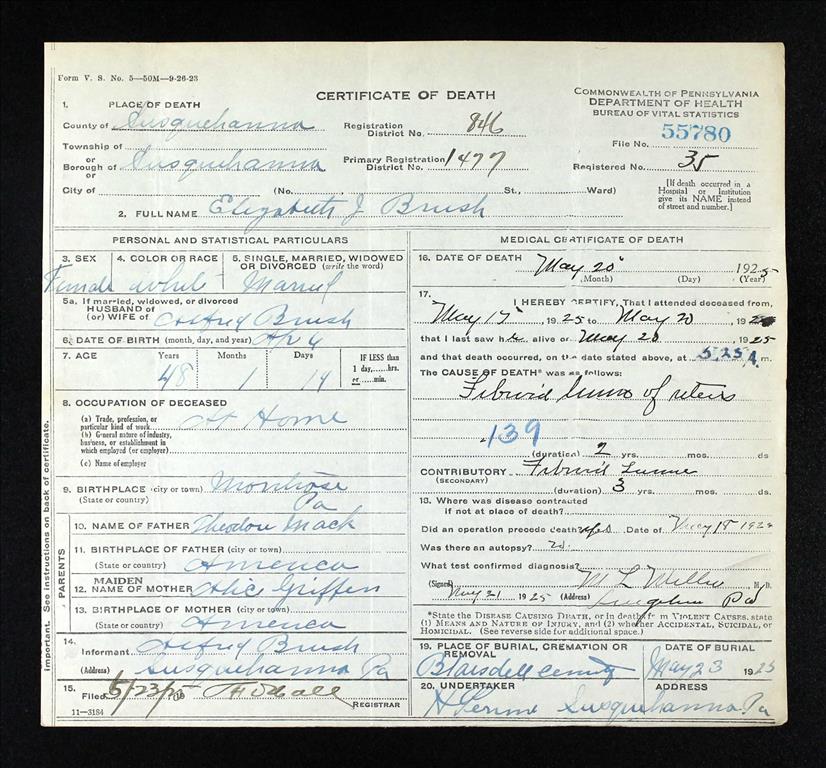 Form V. S. No. 5—50M—9-26-23
CERTIFICATE OF DEATH
COMMONWEALTH OF PENNSYLVANIA
DEPARTMENT OF HEALTH
BUREAU OF VITAL STATISTICS
1. PLACE OF DEATH
County of Susquehanna
Registration District No. 846
File No. 55780
Township of
or
Borough of Susquehanna
Primary Registration District No. 1477
Registered No. 35
or
City of (No. St., Ward)
[If death occurred in a Hospital or Institution give its NAME instead of street and number.]
2. FULL NAME Elizabeth J Brush
PERSONAL AND STATISTICAL PARTICULARS
3. SEX
4. COLOR OR RACE
5. SINGLE, MARRIED, WIDOWED OR DIVORCED (write the word)
Female White Married
5a. If married, widowed, or divorced
HUSBAND of
(or) WIFE of Brush
6. DATE OF BIRTH (month, day, and year) Apr 6
7. AGE Years Months Days
IF LESS than 1 day,......hrs. or......min.
48 1 14
8. OCCUPATION OF DECEASED
(a) Trade, profession, or particular kind of work At Home
(b) General nature of industry, business, or establishment in which employed (or employer)
(c) Name of employer
9. BIRTHPLACE (city or town) Montrose
(State or country) Pa
PARENTS
10. NAME OF FATHER Theodore Mack
11. BIRTHPLACE OF FATHER (city or town)
(State or country) America
12. MAIDEN NAME OF MOTHER Alice Griffen
13. BIRTHPLACE OF MOTHER (city or town)
(State or country) America
14.
Informant Brush
(Address) Susquehanna Pa
15.
Filed 5/23/25
REGISTRAR
11—3184
important. See instructions on back of certificate.
MEDICAL CERTIFICATE OF DEATH
16. DATE OF DEATH May 20 1925
(Month) (Day) (Year)
17. I HEREBY CERTIFY, That I attended deceased from,
May 15, 1925 to May 20 192
that I last saw h alive on May 20 1925
and that death occurred, on the date stated above, at 5.25 A. m.
The CAUSE OF DEATH* was as follows:
Fibroid of
139
(duration) 2 yrs. mos. ds
CONTRIBUTORY Fibroid
(SECONDARY)
(duration) 3 yrs. mos. ds
18. Where was disease contracted
if not at place of death?
Did an operation precede death? yes. Date of May 19 192
Was there an autopsy?
What test confirmed diagnosis?
(Signed) M L Miller M. D.
May 21, 1925 (Address) Pa
*State the DISEASE CAUSING DEATH, or in death from VIOLENT CAUSES, state (1) MEANS AND NATURE OF INJURY, and (2) whether ACCIDENTAL, SUICIDAL, or HOMICIDAL. (See reverse side for additional space.)
19. PLACE OF BURIAL, CREMATION OR REMOVAL
DATE OF BURIAL
Blaisdell May 23 1925
20. UNDERTAKER
ADDRESS
Susquehanna Pa